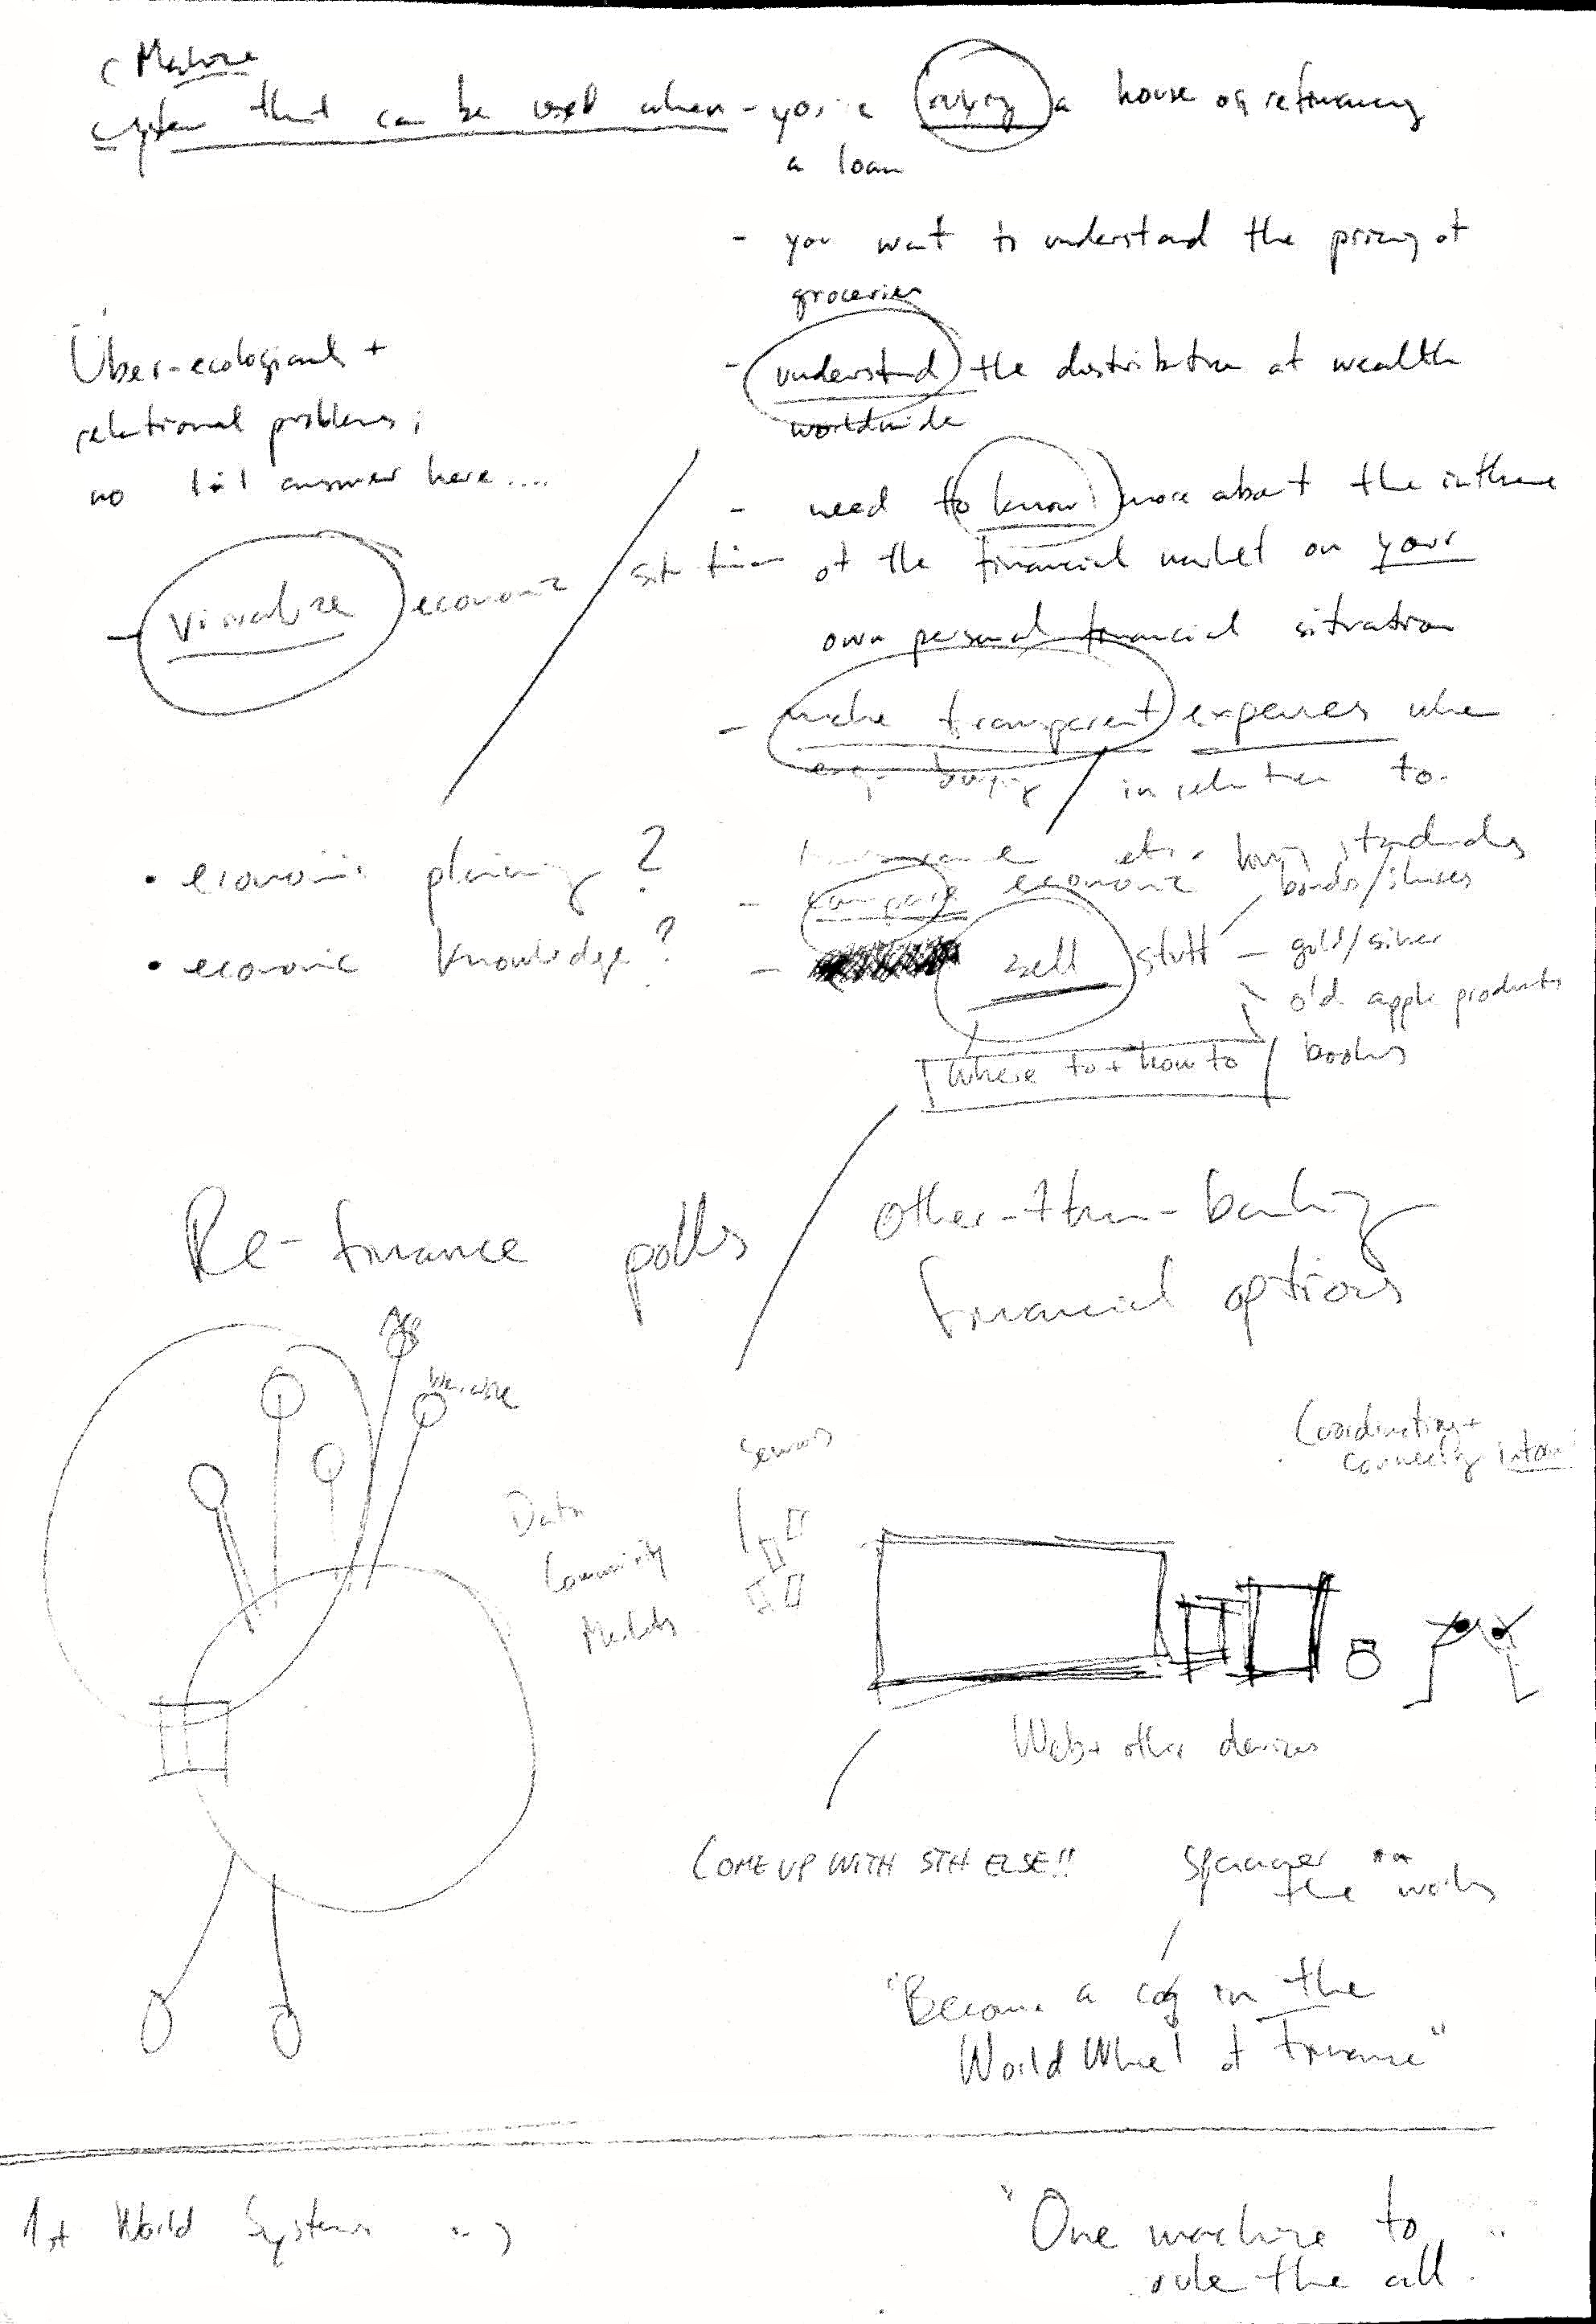 Machine
System that can be used when - you're buying a house or refinancing
a loan
- you want to understand the pricing of
groceries
- understand the distribution of wealth
worldwide
- need to know more about the influence
of the financial market on your
own personal financial situation
- make transparent expenses when
e.g. buying / in relation to
etc. living standards
- compare economic
- sell stuff
bonds/shares
gold/silver
old apple products
books
where to + how to
Über-ecological +
relational problems;
no 1:1 answer here....
- Visualize economic situation
• economic planning?
• economic knowledge?
Re-finance polls
other-than-banking
financial options
Data
Community
Markets
Sensors
Coordinating +
connecting
Web + other devices
COME UP WITH STH ELSE!!
Spanner in
the works
"Become a cog in the
World Wheel of Finance"
1st World Systems
"One machine to
rule the all."